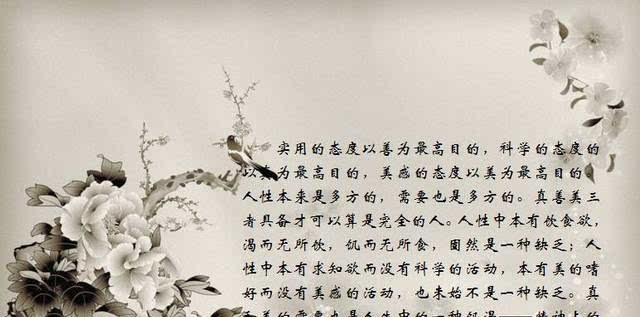 实用的态度以善为最高目的，科学的态度
以真为最高目的，美感的态度以美为最高目的。
人性本来是多方的，需要也是多方的。真善美三
者具备才可以算是完全的人。人性中本有饮食欲，
渴而无所饮，饥而无所食，固然是一种缺乏；人
性中本有求知欲而没有科学的活动，本有美的嗜
好而没有美感的活动，也未始不是一种缺乏。真
和美的需要也是人生中的一种饥渴——精神上的